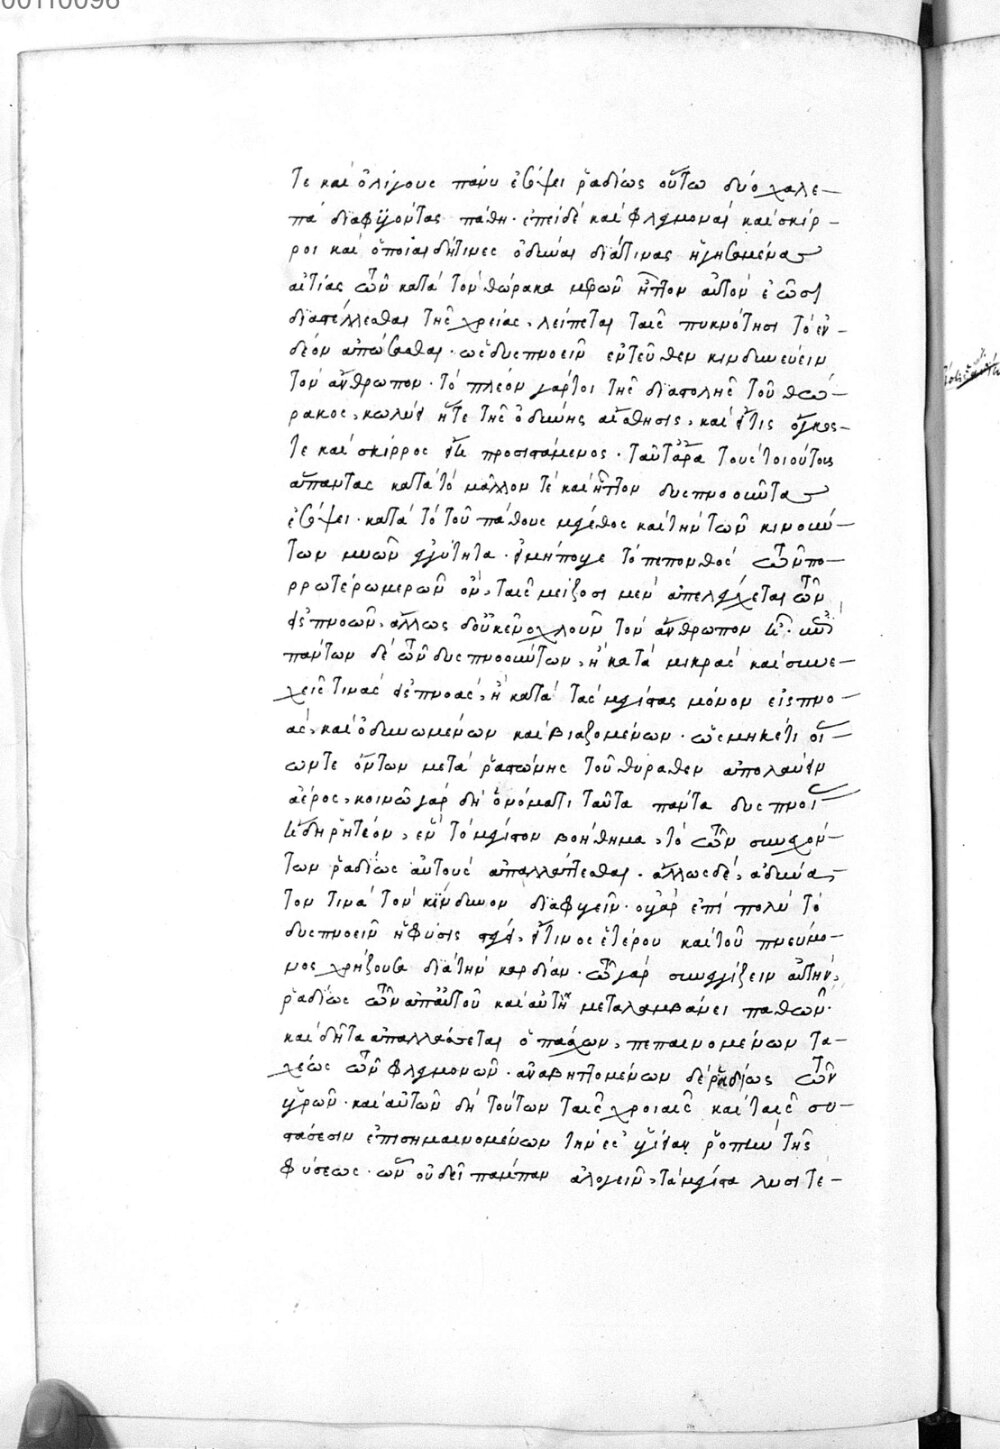 00110096
τε καὶ ὀλίγους πάνυ εὑρήσει ῥᾳδίως οὕτω δύο χαλε-
πὰ διαφυγόντας πάθη· ἐπειδὲ καὶ φλεγμοναὶ καὶ σκίρ-
ροι καὶ ὁποῖαι δήτινες ὀδύναι διάτινας ἡγησαμένας
αἰτίας τῶν κατὰ τὸν θώρακα μερῶν ἧττον αὐτὸν ἐῶσι
διαστέλλεσθαι τῆς χρείας, λείπεται ταῖς πυκνότησι τὸ ἐν-
δέον ἀπώσασθαι· ὡς δυσπνοεῖν ἐντεῦθεν κινδυνεύειν
τὸν ἄνθρωπον· τὸ πλέον γάρτοι τῆς διαστολῆς τοῦ θώ-
ρακος, κωλύει ἥτε τῆς ὀδύνης αἴσθησις, καὶ εἴτις ὄγκος
τε καὶ σκίρρος εἴη προσιστάμενος· ταῦτ' ἄρα τοὺς τοιούτους
ἅπαντας κατὰ τὸ μᾶλλον τὲ καὶ ἧττον δυσπνοοῦντας
εὑρήσει· κατὰ τὸ τοῦ πάθους μέγεθος καὶ τὴν τῶν κινούν-
των μυῶν
τὸ πεπονθὸς τῶν πο-
ρρωτέρω μερῶν ὂν, ταῖς μείζοσι μὲν
εἰσπνοῶν, ἄλλως δ' οὐκ ἐνοχλοῦν τὸν ἄνθρωπον
πάντων δὲ τῶν δυσπνοούντων, ἢ κατὰ μικρὰς καὶ συνε-
χεῖς τινὰς εἰσπνοὰς, ἢ κατὰ τὰς μεγίστας μόνον εἰσπνο-
ὰς, καὶ ὀδυνωμένων καὶ βιαζομένων· ὡς μηκέτι οἵ-
ων τε ὄντων μετὰ ῥαστώνης τοῦ θύραθεν ἀπολαύειν
ἀέρος, κοινῷ γὰρ δὴ ὀνόματι ταῦτα πάντα δύσπνοι-
αν δὴ ῥητέον, ἓν τὸ μέγιστον βοήθημα, τὸ τῶν συνεχόν-
των ῥᾳδίως αὐτοὺς ἀπαλλάττεσθαι· ἄλλως δὲ, ἀδύνα-
τον τινὰ τὸν κίνδυνον διαφυγεῖν· οὐ γὰρ ἐπὶ πολὺ τὸ
δυσπνοεῖν ἡ φύσις φέρει, εἴτινος ἑτέρου καὶ τοῦ πνεύμο-
νος χρῄζουσα διὰ τὴν καρδίαν· τῷ γὰρ συνεγγίζειν αὐτὴν,
ῥᾳδίως τῶν ἀπ' αὐτοῦ καὶ αὐτὴ μεταλαμβάνει παθῶν·
καὶ δῆτα ἀπαλλάσσεται ὁ πάσχων, πεπαινομένων τα-
χέως τῶν φλεγμονῶν· ἀναβηττομένων δὲ ῥᾳδίως τῶν
ὑγρῶν· καὶ αὐτῶν δὴ τούτων ταῖς χροιαῖς καὶ ταῖς συ-
στάσεσιν ἐπισημαινομένων τὴν ἐς ὑγίειαν ῥοπὴν τῆς
φύσεως· ὧν οὐ δεῖ παμπαν ἀλογεῖν, τὰ μέγιστα λυσιτε-